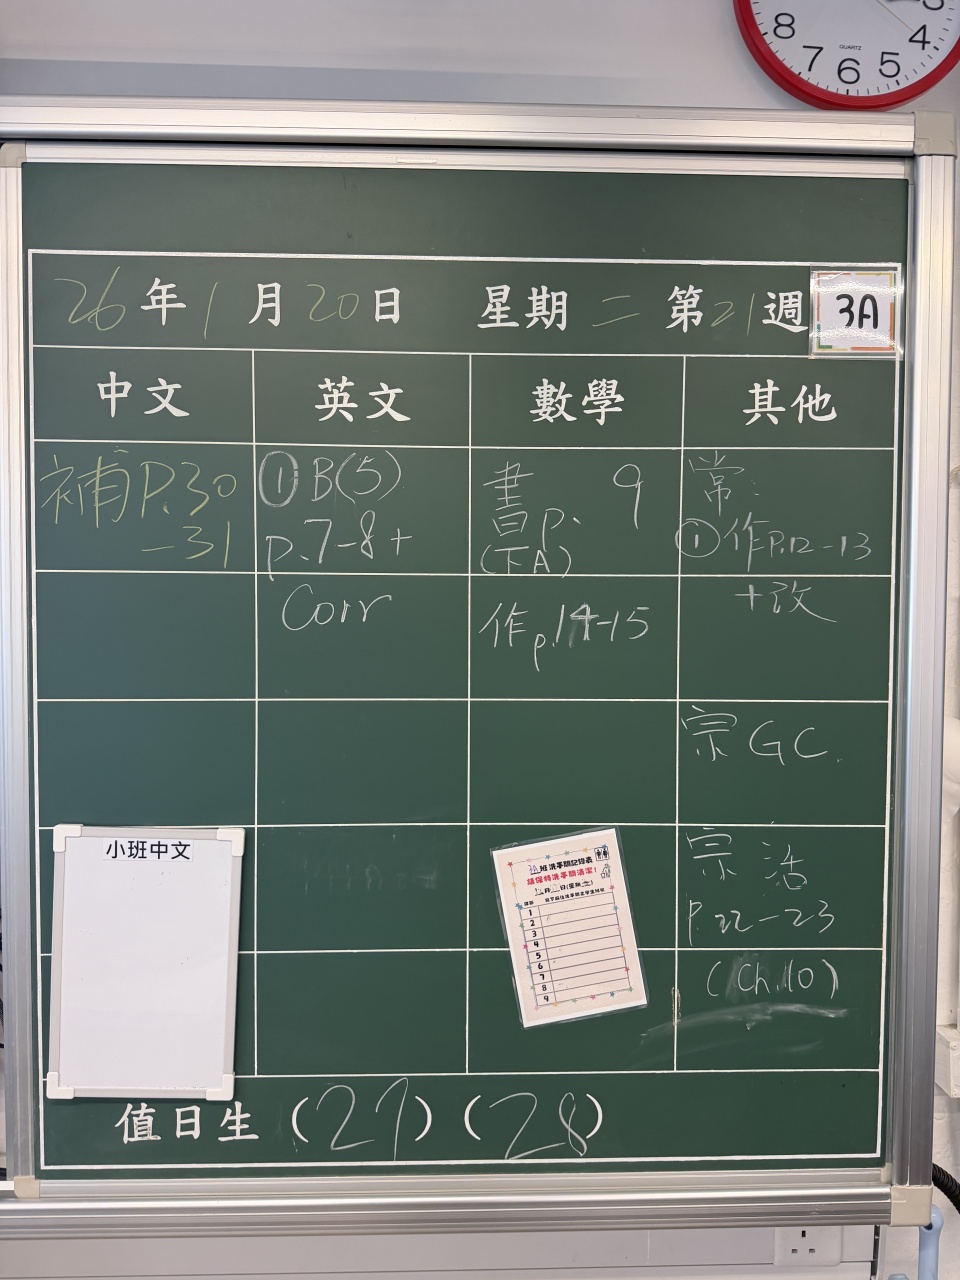 8 7 6 5 4 3
QUARTZ
26年1月20日 星期二 第21週 3A
中文 英文 數學 其他
補P.30
-31
①B(5)
p.7-8+
Corr
書p. 9
(下A)
作p.14-15
常:
①作P.12-13
+改
宗GC.
宗 活
P.22-23
(Ch.10)
小班中文
3A班洗手間記錄表
請保持洗手間清潔!
1
2
3
4
5
6
7
8
9
值日生(27)(28)